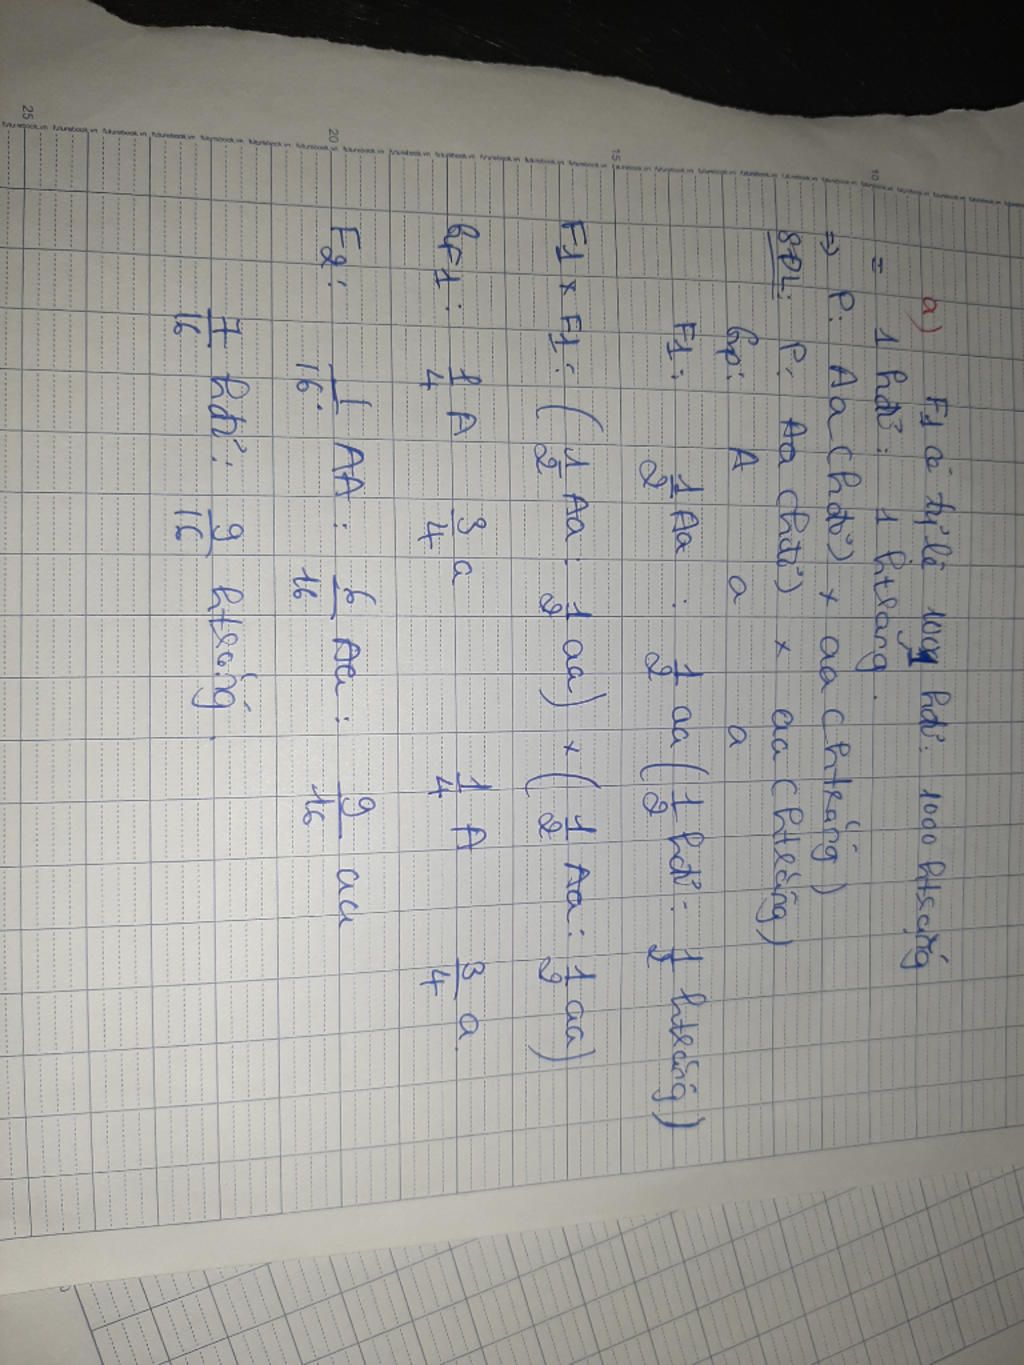 a) F1 có tỷ lệ 1001 hđỏ: 1000 htrắng
= 1 hđỏ: 1 htrắng.
=> P: Aa (hđỏ) x aa (htrắng)
SĐL: P: Aa (hđỏ) x aa (htrắng)
Gp: A a a
F1: 1/2 Aa : 1/2 aa (1/2 hđỏ: 1/2 htrắng)
F1 x F1: (1/2 Aa: 1/2 aa) x (1/2 Aa: 1/2 aa)
GF1: 1/4 A 3/4 a 1/4 A 3/4 a.
F2: 1/16 AA: 6/16 Aa: 9/16 aa
7/16 hđỏ: 9/16 htrắng.
10
15
20
25